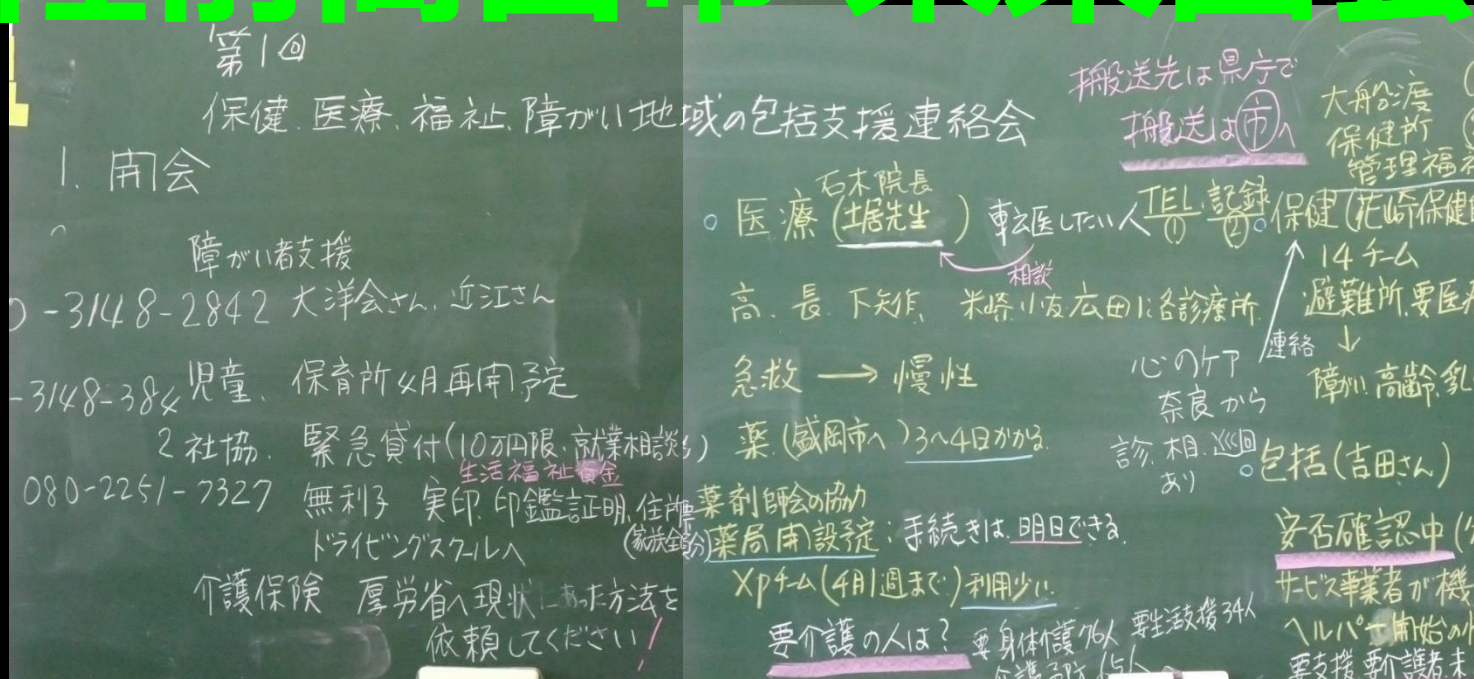 陸前高田市 未来図会
第1回
保健.医療、福祉、障がい地域の包括支援連絡会
1. 開会
障がい者支援
-3148-2842 大洋会さん、近江さん
-3148-384 児童、保育所4月再開予定
2 社協. 緊急貸付(10万円限.就業相談も)
生活福祉資金
080-2251-7327 無利子 実印.印鑑証明、住所票
(家族全部分)
ドライビングスクールへ
介護保険 厚労省へ現状にあった方法を
依頼してください!
搬送先は県庁で
搬送は市へ
大船渡
保健所
管理福祉
石木院長
。医療(土居先生) 転医したい人 TEL① 記録②
相談
高. 長. 下矢作、 米崎.小友.広田に各診療所.
急救 → 慢性
薬.(盛岡市へ)3~4日かかる.
薬剤師会の協力
薬局開設予定;手続きは、明日できる.
Xpチーム(4月1週まで)利用少い.
要介護の人は? 要身体介護76人 要生活支援34人
。保健(花崎保健
14チーム
避難所.要医療
↓
障がい.高齢.乳
連絡
心のケア
奈良から
診.相.巡回
あり
。包括(吉田さん)
安否確認中
サービス事業者が機
ヘルパー開始の
要支援.要介護者.未